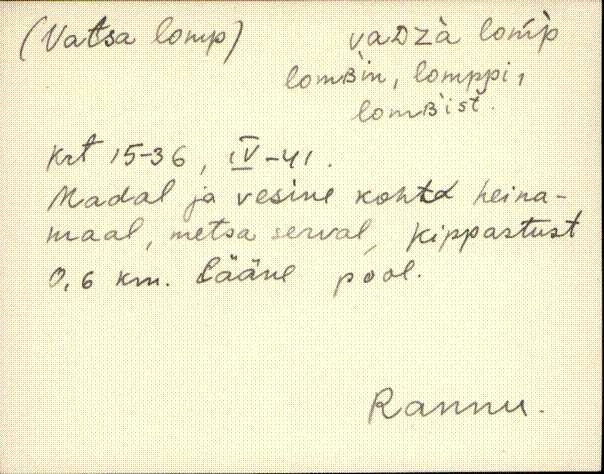 (Vatsa lomp) vaᴅzà lom̀p̀
lomʙ̀in, lomppi,
lomʙ̀ist.
Krt 15-36, IV-41.
Madal ja vesine kohta heina-
maal, metsa serval, Kippastust
0,6 km. lääne pool.
Rannu.